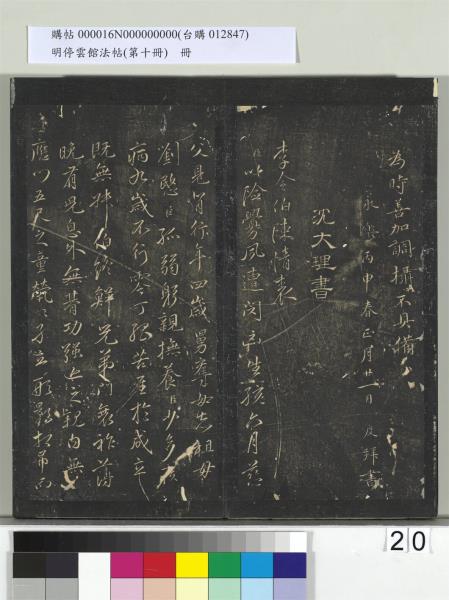 購帖 000016N000000000(台購 012847)
明停雲館法帖(第十冊) 冊
為時善加調攝不具備
永樂丙申春正月廿一日 度拜書
沈大理書
李令伯陳情表
臣以險釁夙遭閔凶生孩六月慈
父見背行年四歲舅奪母志祖母
劉愍臣孤弱躬親撫養臣少多疾
病九歲不行零丁孤苦至於成立
既無叔伯終鮮兄弟門衰祚薄
晚有兒息外無朞功強近之親內無
應門五尺之童煢〻孑立形影相弔而
20